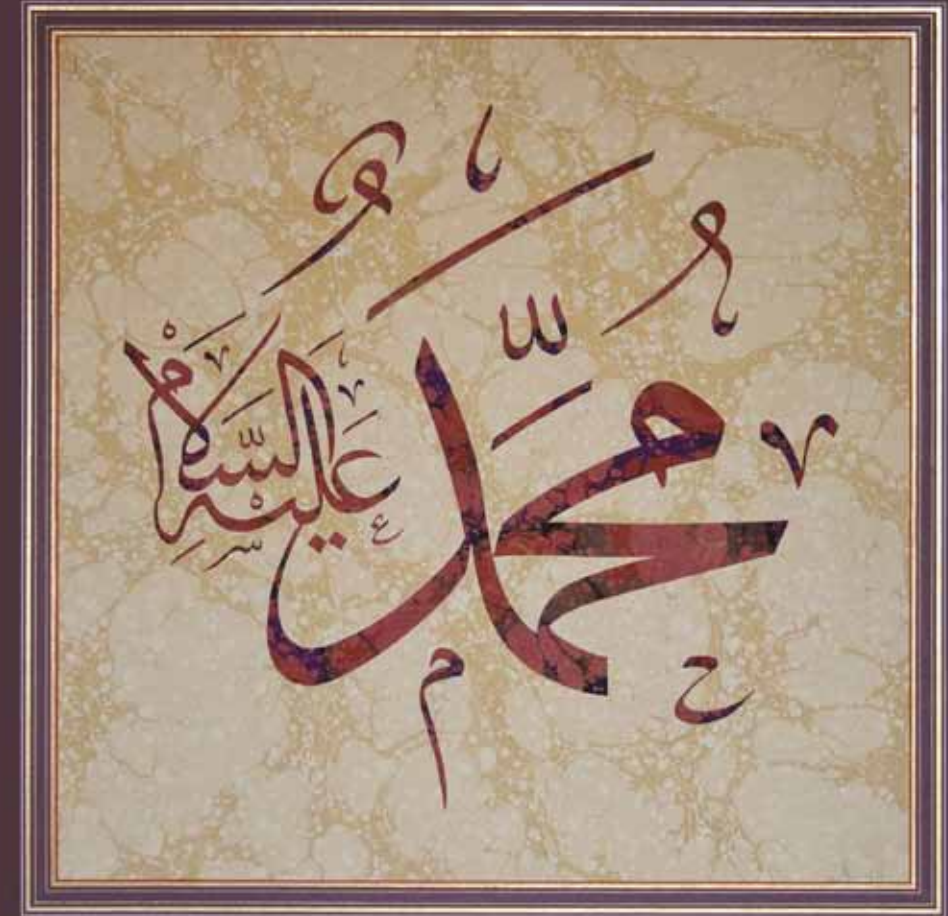 مُحَمَّدٌ عَلَيْهِ السَّلَامُ